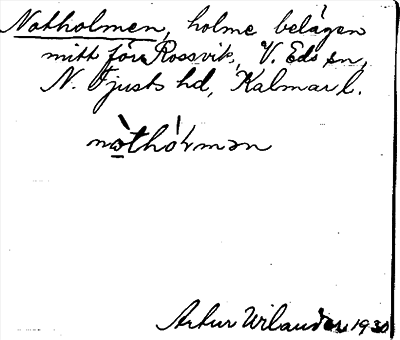 Notholmen, holme belägen
mitt för Rossvik, V. Eds sn,
N. Tjusts hd, Kalmar l.
Artur Wilander 1930